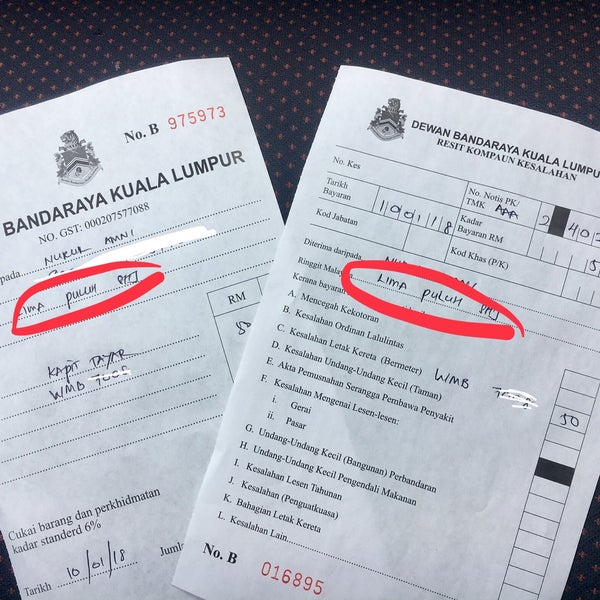 No. B 975973
BANDARAYA KUALA LUMPUR
NO. GST: 000207577088
pada NURUL AMNI
LIMA PULUH SHJ
RM
50
KAPIT TAYAR
WMB
Cukai barang dan perkhidmatan
kadar standerd 6%
Tarikh 10/01/18 Jumla
DEWAN BANDARAYA KUALA LUMPU
RESIT KOMPAUN KESALAHAN
No. Kes
Tarikh
Bayaran 100118
No. Notis PK/
TMK AAA
Kod Jabatan
Kadar
Bayaran RM
Kod Khas (P/K)
Diterima daripada
Ringgit Malaysia LIMA PULUH SHJ
Kerana bayaran
A. Mencegah Kekotoran
B. Kesalahan Ordinan Lalulintas
C. Kesalahan Letak Kereta (Bermeter) WMB
D. Kesalahan Undang-Undang Kecil (Taman)
E. Akta Pemusnahan Serangga Pembawa Penyakit
F. Kesalahan Mengenai Lesen-lesen:
i. Gerai
ii. Pasar
50
G. Undang-Undang Kecil (Bangunan) Perbandaran
H. Undang-Undang Kecil Pengendali Makanan
I. Kesalahan Lesen Tahunan
J. Kesalahan (Penguatkuasa)
K. Bahagian Letak Kereta
L. Kesalahan Lain
No. B 016895